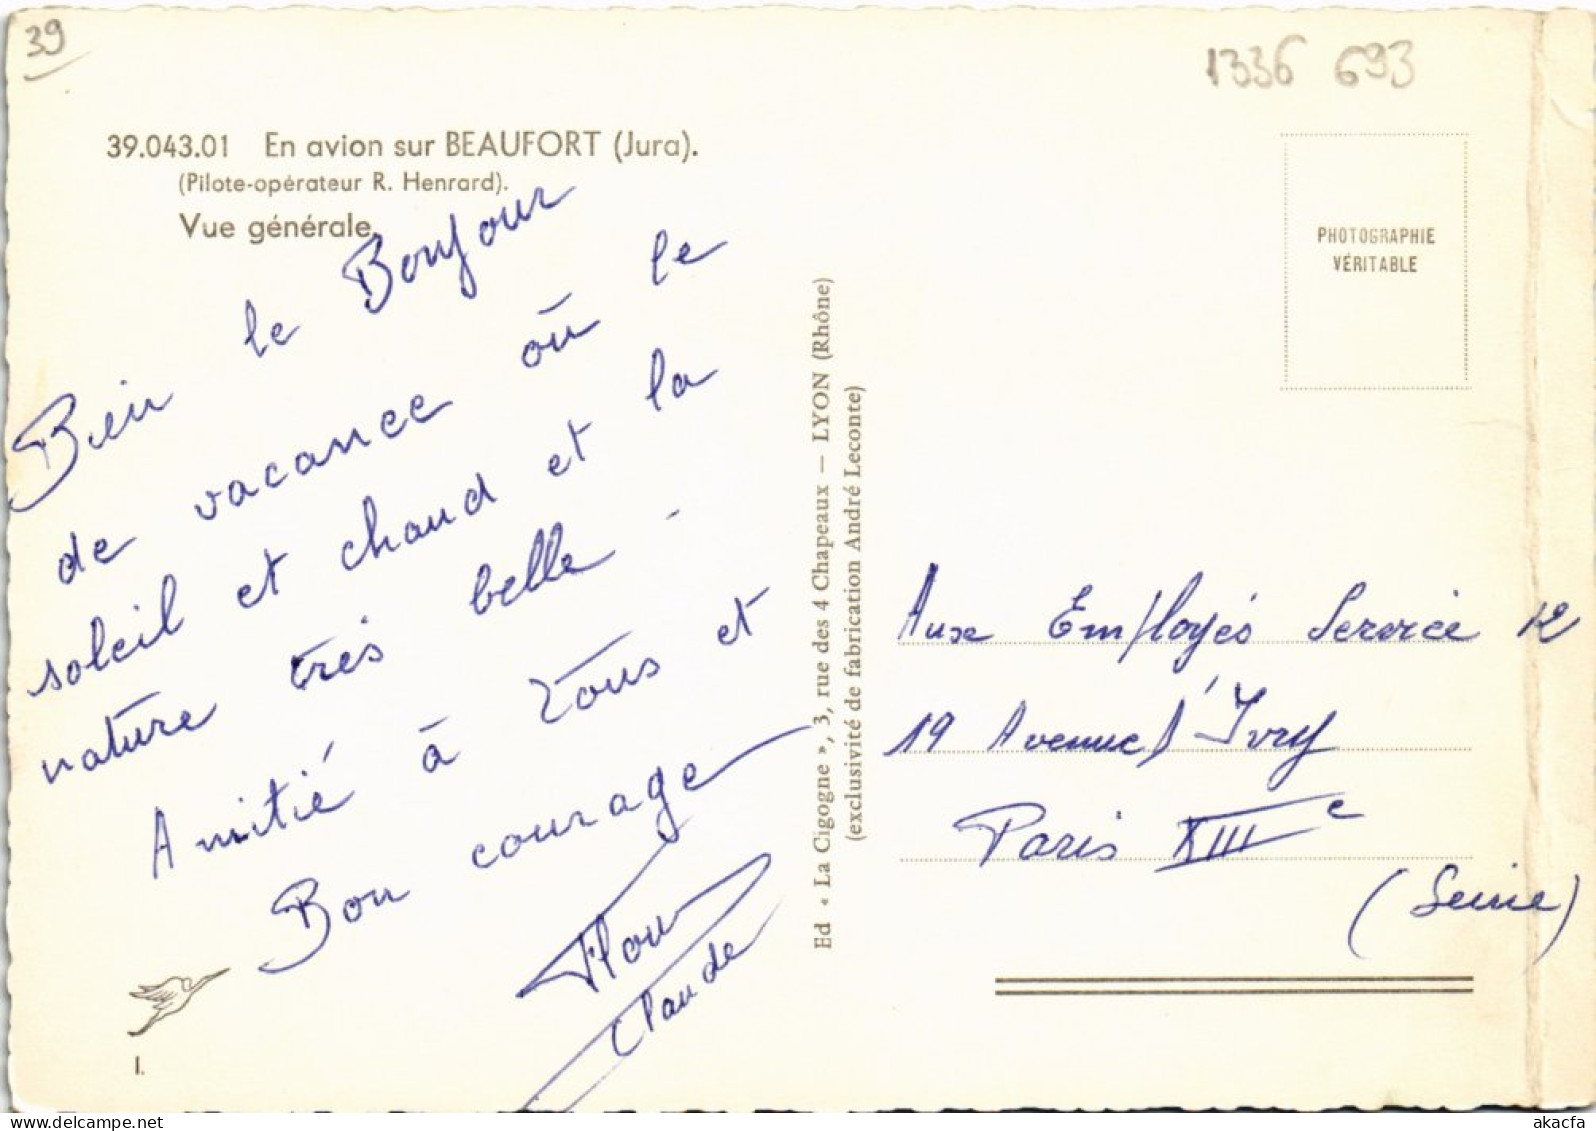 39
1336 693
39.043.01 En avion sur BEAUFORT (Jura).
(Pilote-opérateur R. Henrard).
Vue générale.
Bien le Bonjour
de vacance où le
soleil et chaud et la
nature très belle -
Amitié à Tous et
Bon courage
Claude
I.
Ed « La Cigogne », 3, rue des 4 Chapeaux — LYON (Rhône)
(exclusivité de fabrication André Leconte)
PHOTOGRAPHIE
VÉRITABLE
Aux Employés Service 12
19 Avenue d'Ivry
Paris XIIIe
(Seine)
www.delcampe.net
akacfa